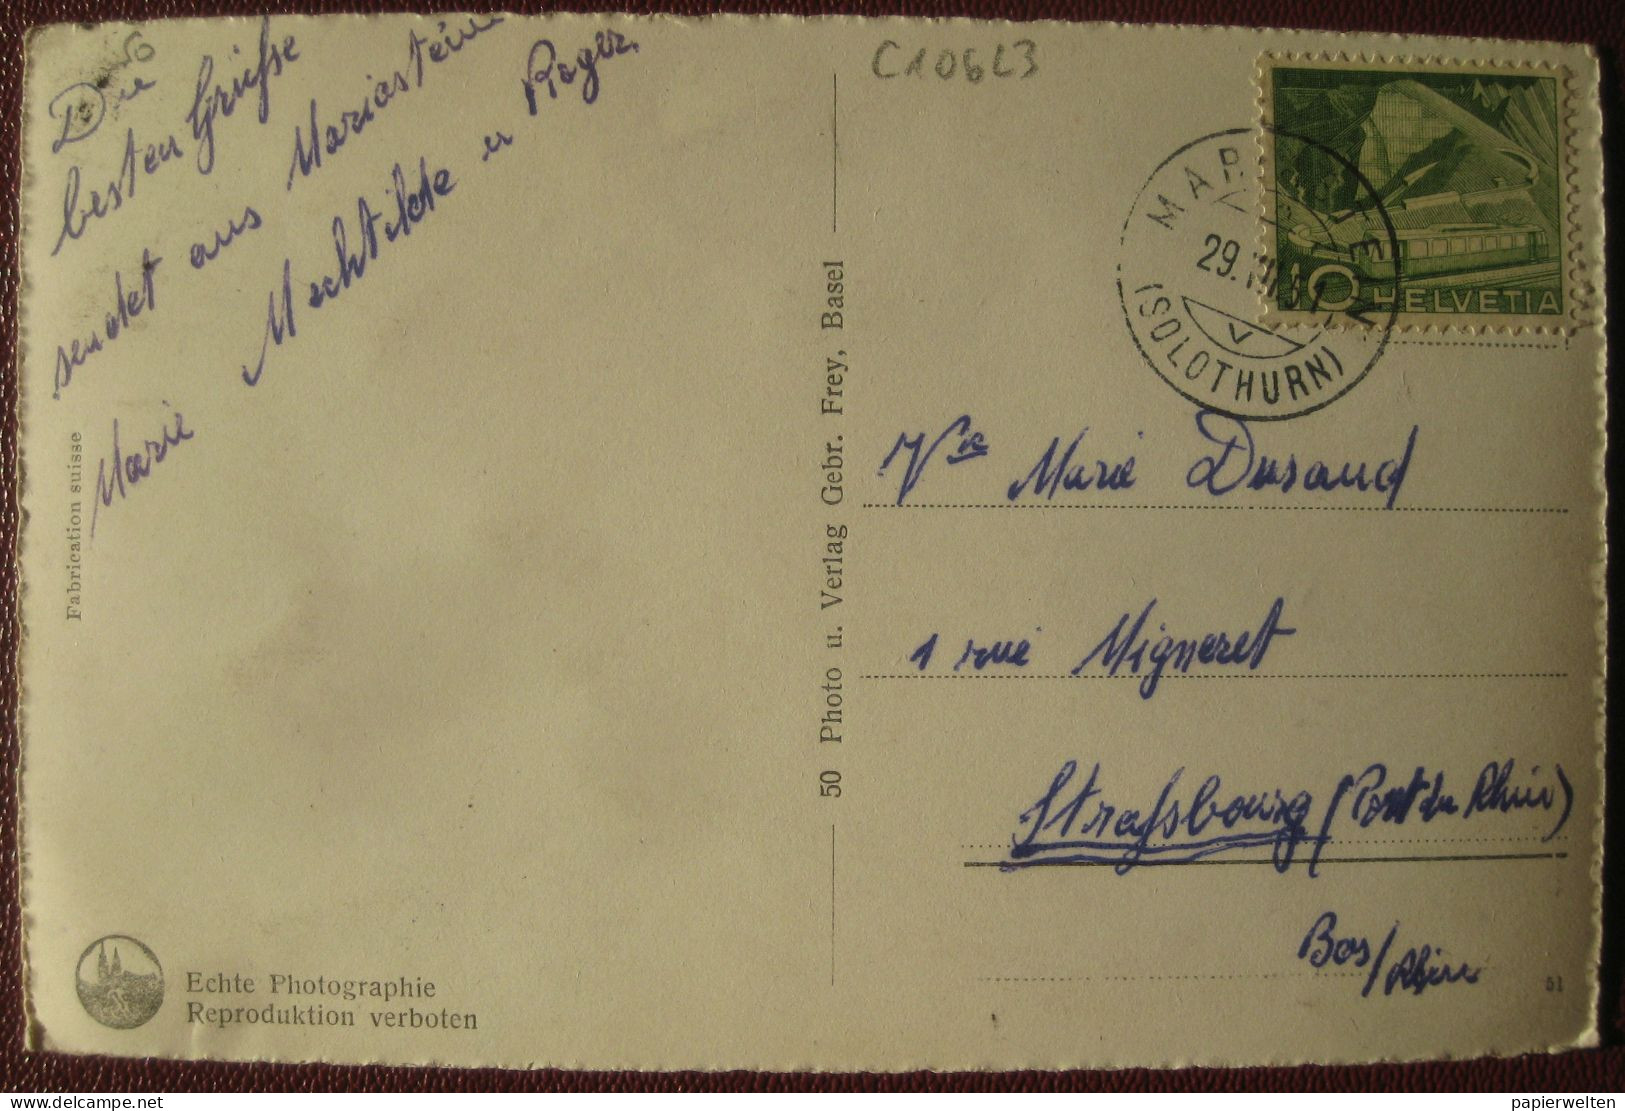 Die
besten Grüsse
sendet aus Mariastein
Marie Mechtilde u Roger.
Fabrication suisse
Echte Photographie
Reproduktion verboten
50 Photo u. Verlag Gebr. Frey, Basel
C106L3
MARIASTEIN
29.VIII.51
(SOLOTHURN)
10 HELVETIA
Vve Marie Durand
1 rue Migneret
Strassbourg (Port du Rhin)
Bas/Rhin
51
papierwelten
delcampe.net